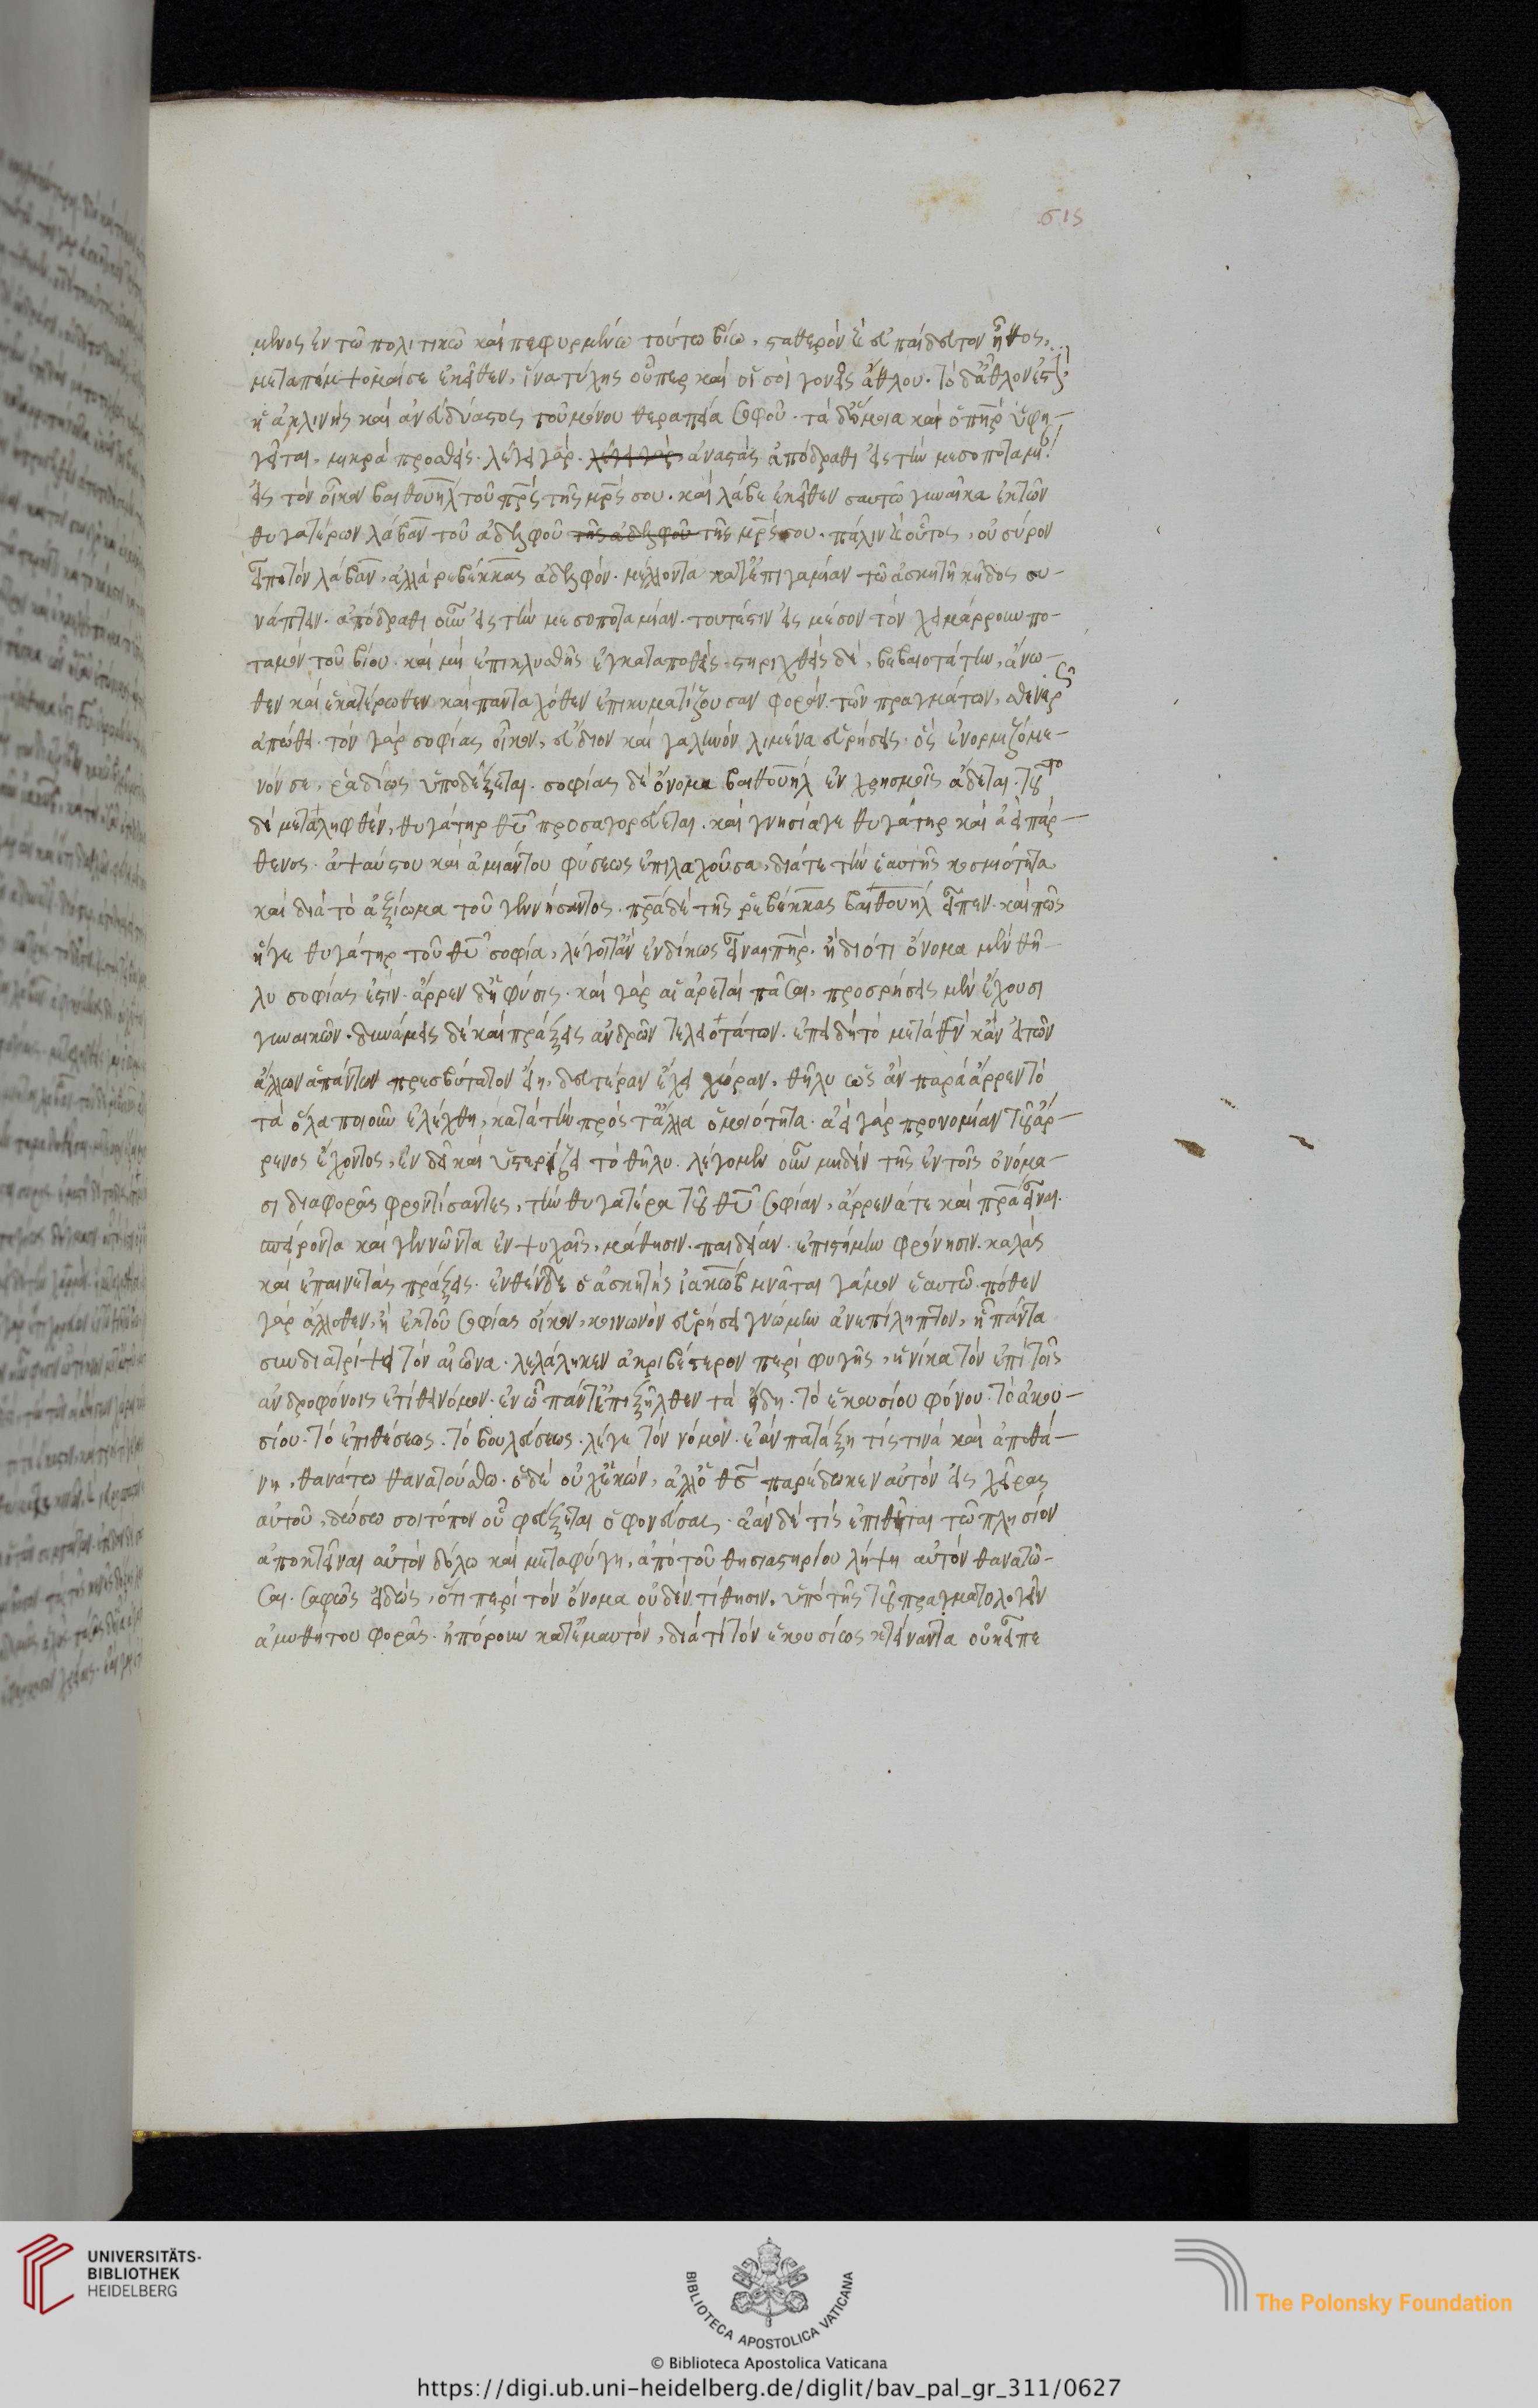 σις
μενος ἐν τῶ πολιτικῶ καὶ πεφυρμένω τούτω βίω, σταθερὸν καὶ εὐπαίδευτον ἦθος,
μεταπέμψομαί σε ἐκεῖθεν, ἵνα τύχης οὗπερ καὶ οἵ σοὶ γονεῖς ἄθλου. τὸ δ' ἆθλόν ἐστιν
ἡ ἀκλινὴς καὶ ἀνένδύαστος τοῦ μόνου θεραπεία σοφοῦ. τὰ δ' ὅμοια καὶ ὁ πηρ ὑφη-
γεῖται, μικρὰ προσθείς. λέγει γάρ. λέγει γάρ, ἀναστὰς ἀπόδραθι εἰς τὴν μεσοποταμίαν
εἰς τὸν οἶκον βαιθουὴλ τοῦ πρς τῆς μρς σου. καὶ λάβε ἐκεῖθεν σαυτῶ γυναῖκα ἐκ τῶν
θυγατέρων λάβαν τοῦ ἀδελφοῦ τῆς ἀδελφοῦ τῆς μρς σου. πάλιν καὶ οὗτος, οὐ σύρον
εἶπε τὸν λάβαν, ἀλλὰ ρεβέκκας ἀδελφόν. μέλλοντα κατ' ἐπιγαμίαν τῶ ἀσκητῆ κῆδος συ-
νάπτειν. ἀπόδραθι οὖν εἰς τὴν μεσοποταμίαν. τουτέστιν εἰς μέσον τὸν χειμάρρουν πο-
ταμὸν τοῦ βίου. καὶ μὴ ἐπικλυσθῆς ἐγκαταποθείς. στηριχθεὶς δὲ, βεβαιοτάτην, ἄνω-
θεν καὶ ἑκατέρωθεν καὶ πανταχόθεν ἐπικυματίζουσαν φορὰν τῶν πραγμάτων, σθεναρῶς
ἀπώθει. τὸν γὰρ σοφίας οἶκον, εὔδιον καὶ γαληνὸν λιμένα εὑρήσεις. ὃς ἐνορμιζόμε-
νόν σε, ραδίως ὑποδέξεται. σοφίας δὲ ὄνομα βαιθουὴλ ἐν χρησμοῖς ἄδεται. τοῦτο
δὲ μεταληφθὲν, θυγάτηρ θυ προσαγορεύεται. καὶ γνησία γε θυγάτηρ καὶ ἀειπάρ-
θενος. ἀψαύστου καὶ ἀμιάντου φύσεως ἐπιλαχοῦσα, διά τε τὴν ἑαυτῆς κοσμιότητα
καὶ διὰ τὸ ἀξίωμα τοῦ γεννήσαντος. πρα δὲ τῆς ρεβέκκας βαιθουὴλ εἶπεν. καὶ πῶς
ἥ γε θυγάτηρ τοῦ θυ σοφία, λέγοιτ' ἂν ἐνδίκως εἶναι πηρ. ἢ διότι ὄνομα μὲν θῆ-
λυ σοφίας ἐστὶν. ἄρρεν δ' ἡ φύσις. καὶ γὰρ αἱ ἀρεταὶ πᾶσαι, προσρήσεις μὲν ἔχουσι
γυναικῶν. δυνάμεις δὲ καὶ πράξεις ἀνδρῶν τελειοτάτων. ἐπειδὴ τὸ μετὰ θν κἂν εἰ τῶν
ἄλλων ἁπάντων πρεσβύτατον εἴη, δευτέραν ἔχει χώραν, θῆλυ ὡς ἂν παρὰ ἄρρεν τὸ
τὰ ὅλα ποιοῦν ἐλέχθη, κατὰ τὴν πρὸς τἄλλα ὁμοιότητα. ἀεὶ γὰρ προνομίαν τοῦ ἄρ-
ρενος ἔχοντος, ἐνδεῖ καὶ ὑστερίζει τὸ θῆλυ. λέγομεν οὖν μηδὲν τῆς ἐν τοῖς ὀνόμα-
σι διαφορᾶς φροντίσαντες, τὴν θυγατέρα τοῦ θυ σοφίαν, ἄρρενά τε καὶ πρα εἶναι.
σπείροντα καὶ γεννῶντα ἐν ψυχαῖς, μάθησιν. παιδείαν. ἐπιστήμην φρόνησιν. καλὰς
καὶ ἐπαινετὰς πράξεις. ἐνθένδε ὁ ἀσκητὴς ἰακὼβ μνᾶται γάμον ἑαυτῶ. πόθεν
γὰρ ἄλλοθεν, ἢ ἐκ τοῦ σοφίας οἴκου, κοινωνὸν εὑρήσει γνώμην ἀνεπίληπτον, ἧ πάντα
συνδιατρίψει τὸν αἰῶνα. λελάληκεν ἀκριβέστερον περὶ φυγῆς, ἡνίκα τὸν ἐπὶ τοῖς
ἀνδροφόνοις ἐτίθει νόμον. ἐν ὧ πάντ' ἐπεξῆλθεν τὰ εἴδη. τὸ ἑκουσίου φόνου. τὸ ἀκου-
σίου. τὸ ἐπιθέσεως. τὸ βουλεύσεως. λέγε τὸν νόμον. ἐὰν πατάξη τίς τινὰ καὶ ἀποθά-
νη, θανάτω θανατούσθω. ὁ δὲ οὐχ' ἑκὼν, ἀλλ' ὁ θς παρέδωκεν αὐτὸν εἰς χεῖρας
αὐτοῦ, δώσω σοι τόπον οὗ φεύξεται ὁ φονεύσας. ἐὰν δέ τίς ἐπιθῆται τῶ πλησίον
ἀποκτεῖναι αὐτὸν δόλω καὶ καταφύγη, ἀπὸ τοῦ θησιαστηρίου λήψη αὐτὸν θανατῶ-
σαι. σαφῶς εἰδὼς, ὅτι περὶ τὸν ὄνομα οὐδὲν τίθησιν, ὑπὸ τῆς τοῦ πραγματολογεῖν
ἀμυθήτου φορᾶς. ἠπόρουν κατ' ἐμαυτὸν, διὰ τί τὸν ἑκουσίως κτείναντα οὐκ εἶπε
UNIVERSITÄTS-
BIBLIOTHEK
HEIDELBERG
BIBLIOTECA APOSTOLICA VATICANA
The Polonsky Foundation
© Biblioteca Apostolica Vaticana
https://digi.ub.uni-heidelberg.de/diglit/bav_pal_gr_311/0627